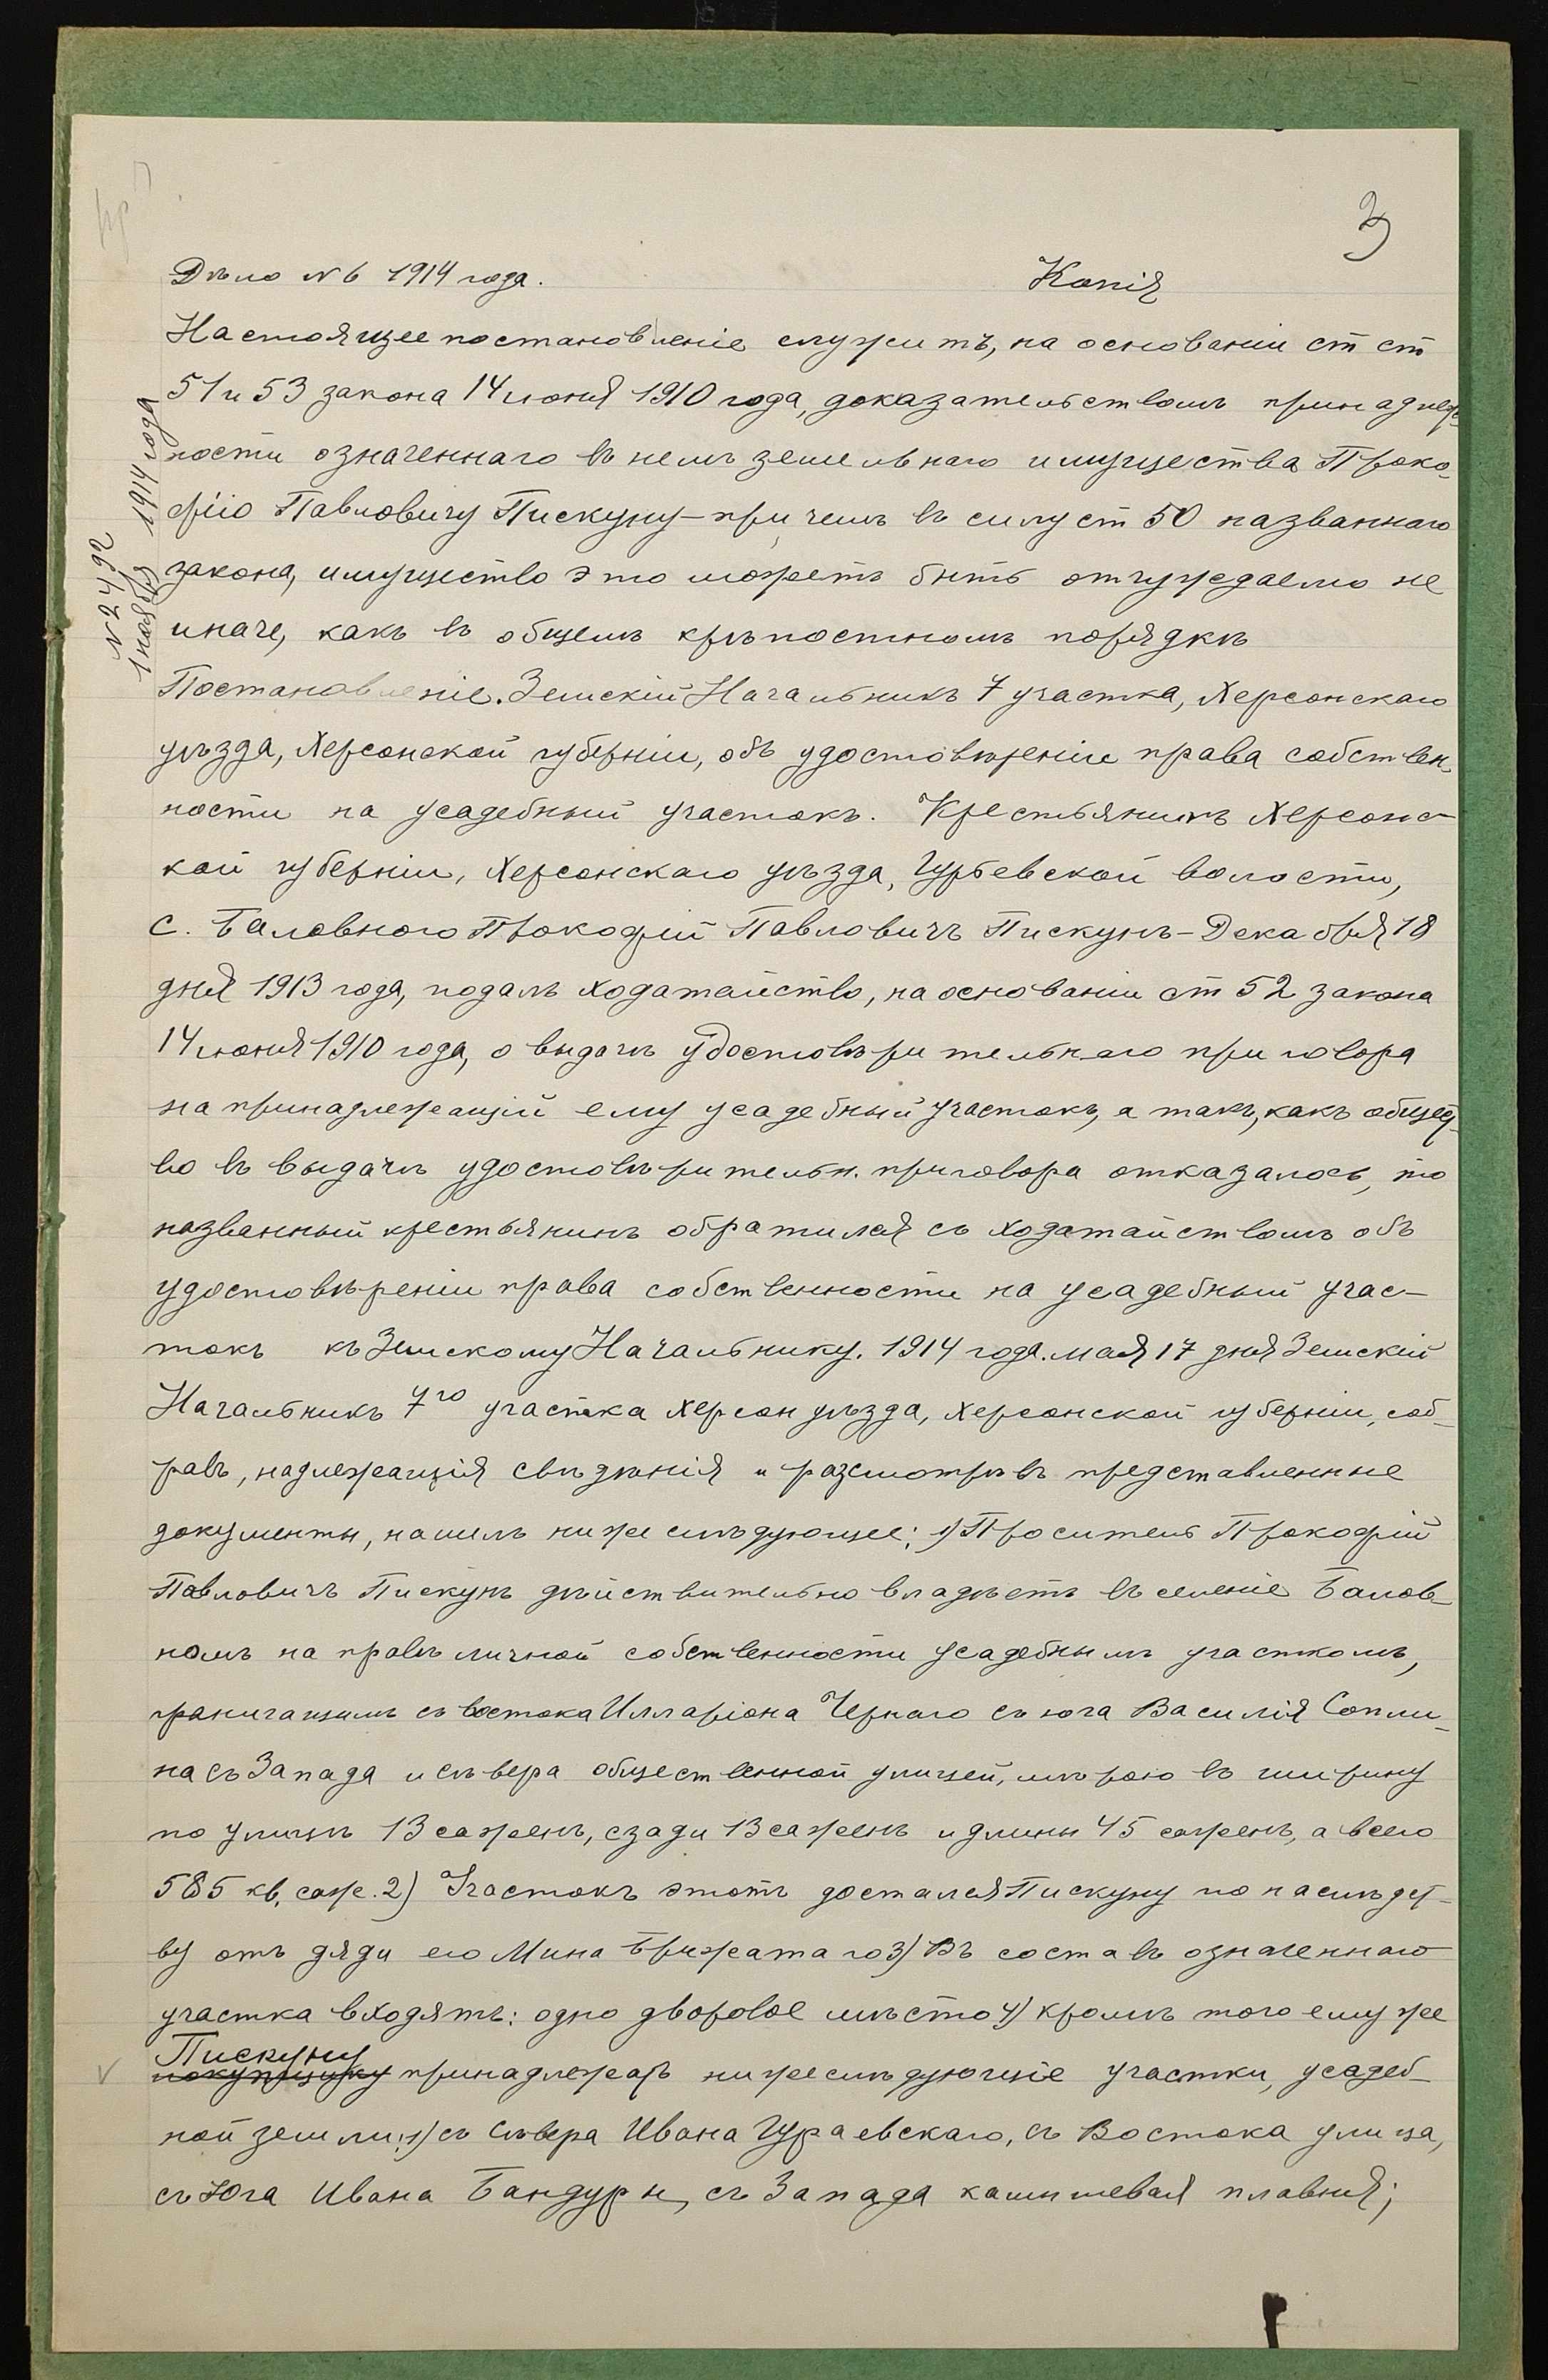 3
Дѣло № 6 1914 года. Копія
Настоящее постановленіе служитъ, на основаніи ст ст
51 и 53 закона 14 іюня 1910 года, доказательствомъ принадлеж-
ности означеннаго въ немъ земельнаго имущества Проко-
фію Павловичу Пискуну - при чемъ въ силу ст 50 названнаго
закона, имущество это можетъ быть отчуждаемо не
иначе, какъ въ общемъ крѣпостномъ порядкѣ
№ 2492
1 ноября 1914 года
Постановленіе. Земскій Начальникъ 7 участка, Херсонскаго
уѣзда, Херсонской губерніи, объ удостовѣреніи права собствен-
ности на усадебный участокъ. Крестьянинъ Херсонс-
кой губерніи, Херсонскаго уѣзда, Гурьевской волости,
с. Баловного Прокофій Павловичъ Пискунъ - Декабря 18
дня 1913 года, подалъ ходатайство, на основаніи ст 52 закона
14 іюня 1910 года, о выдачѣ удостовѣрительнаго приговора
на принадлежащій ему усадебный участокъ, а такъ, какъ общест-
во въ выдачѣ удостовѣрительн. приговора отказалось, то
названный крестьянинъ обратился съ ходатайствомъ объ
удостовѣреніи права собственности на усадебный учас-
токъ къ Земскому Начальнику. 1914 года. мая 17 дня Земскій
Начальникъ 7го участка Херсон уѣзда, Херсонской губерніи, соб-
равъ, надлежащія свѣдѣнія и разсмотрѣвъ представленные
документы, нашелъ нижеслѣдующее: 1) Проситель Прокофій
Павловичъ Пискунъ дѣйствительно владѣетъ въ селеніе Балов-
номъ на правѣ личной собственности усадебнымъ участкомъ,
граничащимъ съ востока Илларіона Чернаго съ юга Василія Сопли-
на съ Запада и сѣвера общественной улицей, мѣрою въ ширину
по улицѣ 13 саженъ, сзади 13 саженъ и длины 45 саженъ, а всего
585 кв. саж. 2) Участокъ этотъ достался Пискуну по наслѣдст-
ву отъ дяди его Мина Брижатаго 3) Въ составъ означеннаго
участка входятъ: одно дворовое мѣсто 4) кромѣ того ему же
Пискуну
покупщику принадлежатъ нижеслѣдующіе участки, усадеб-
ной земли: 1) съ Сѣвера Ивана Гураевскаго, съ Востока улица,
съ Юга Ивана Бандуры, съ Запада камышевая плавня;